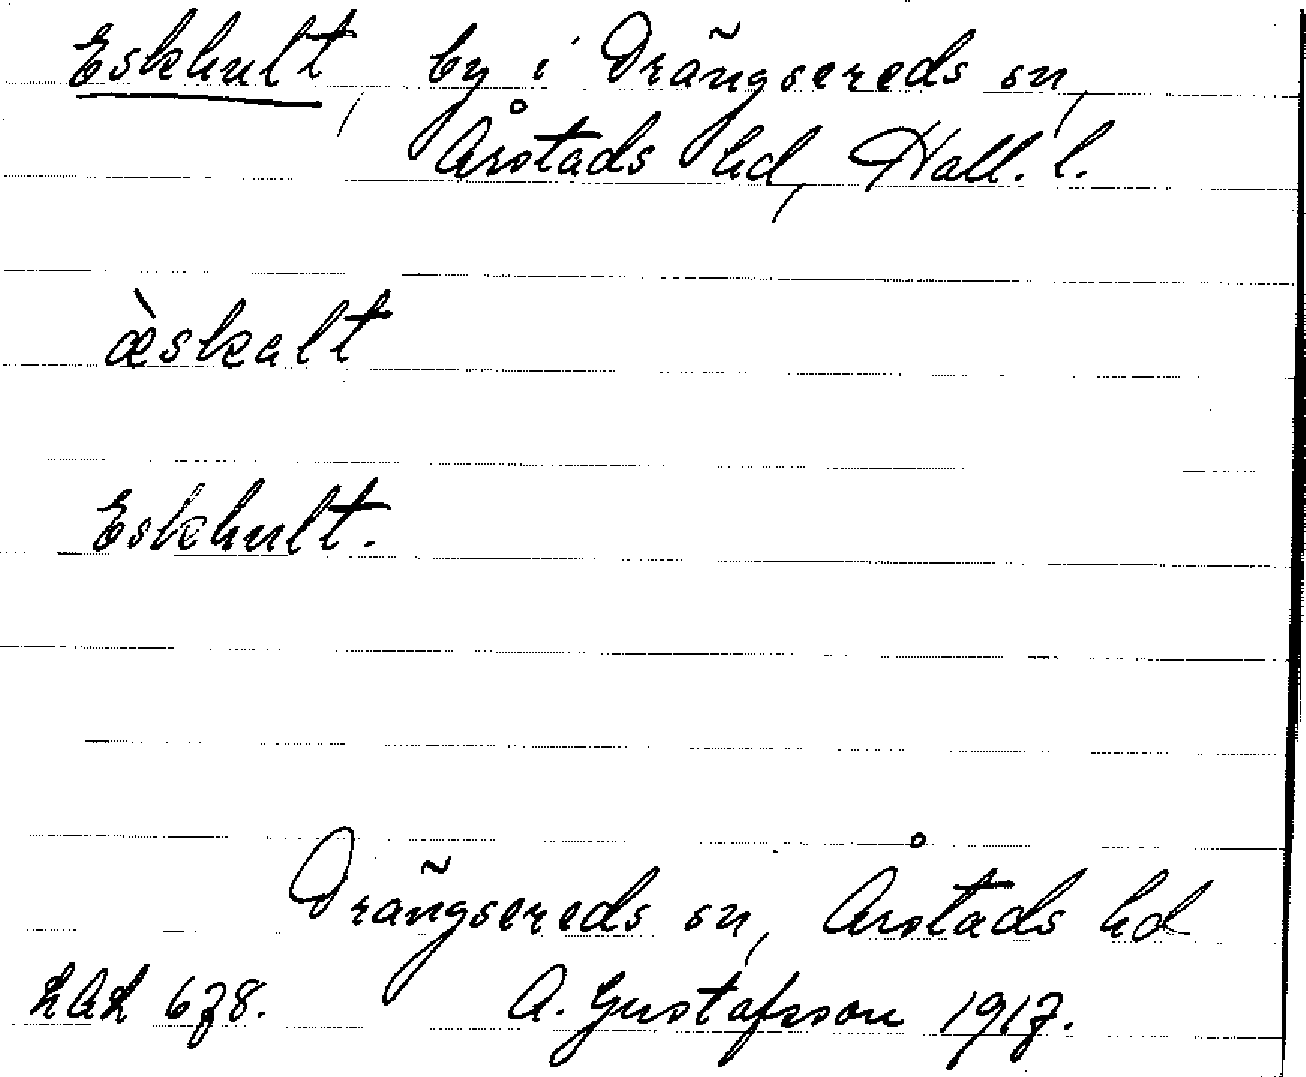 Eskhult, by i Drängsereds sn,
Årstads hd, Hall. l.
æ̀skalt
Eskhult.
Drängsereds sn, Årstads hd
LAL 678. A. Gustafsson 1917.